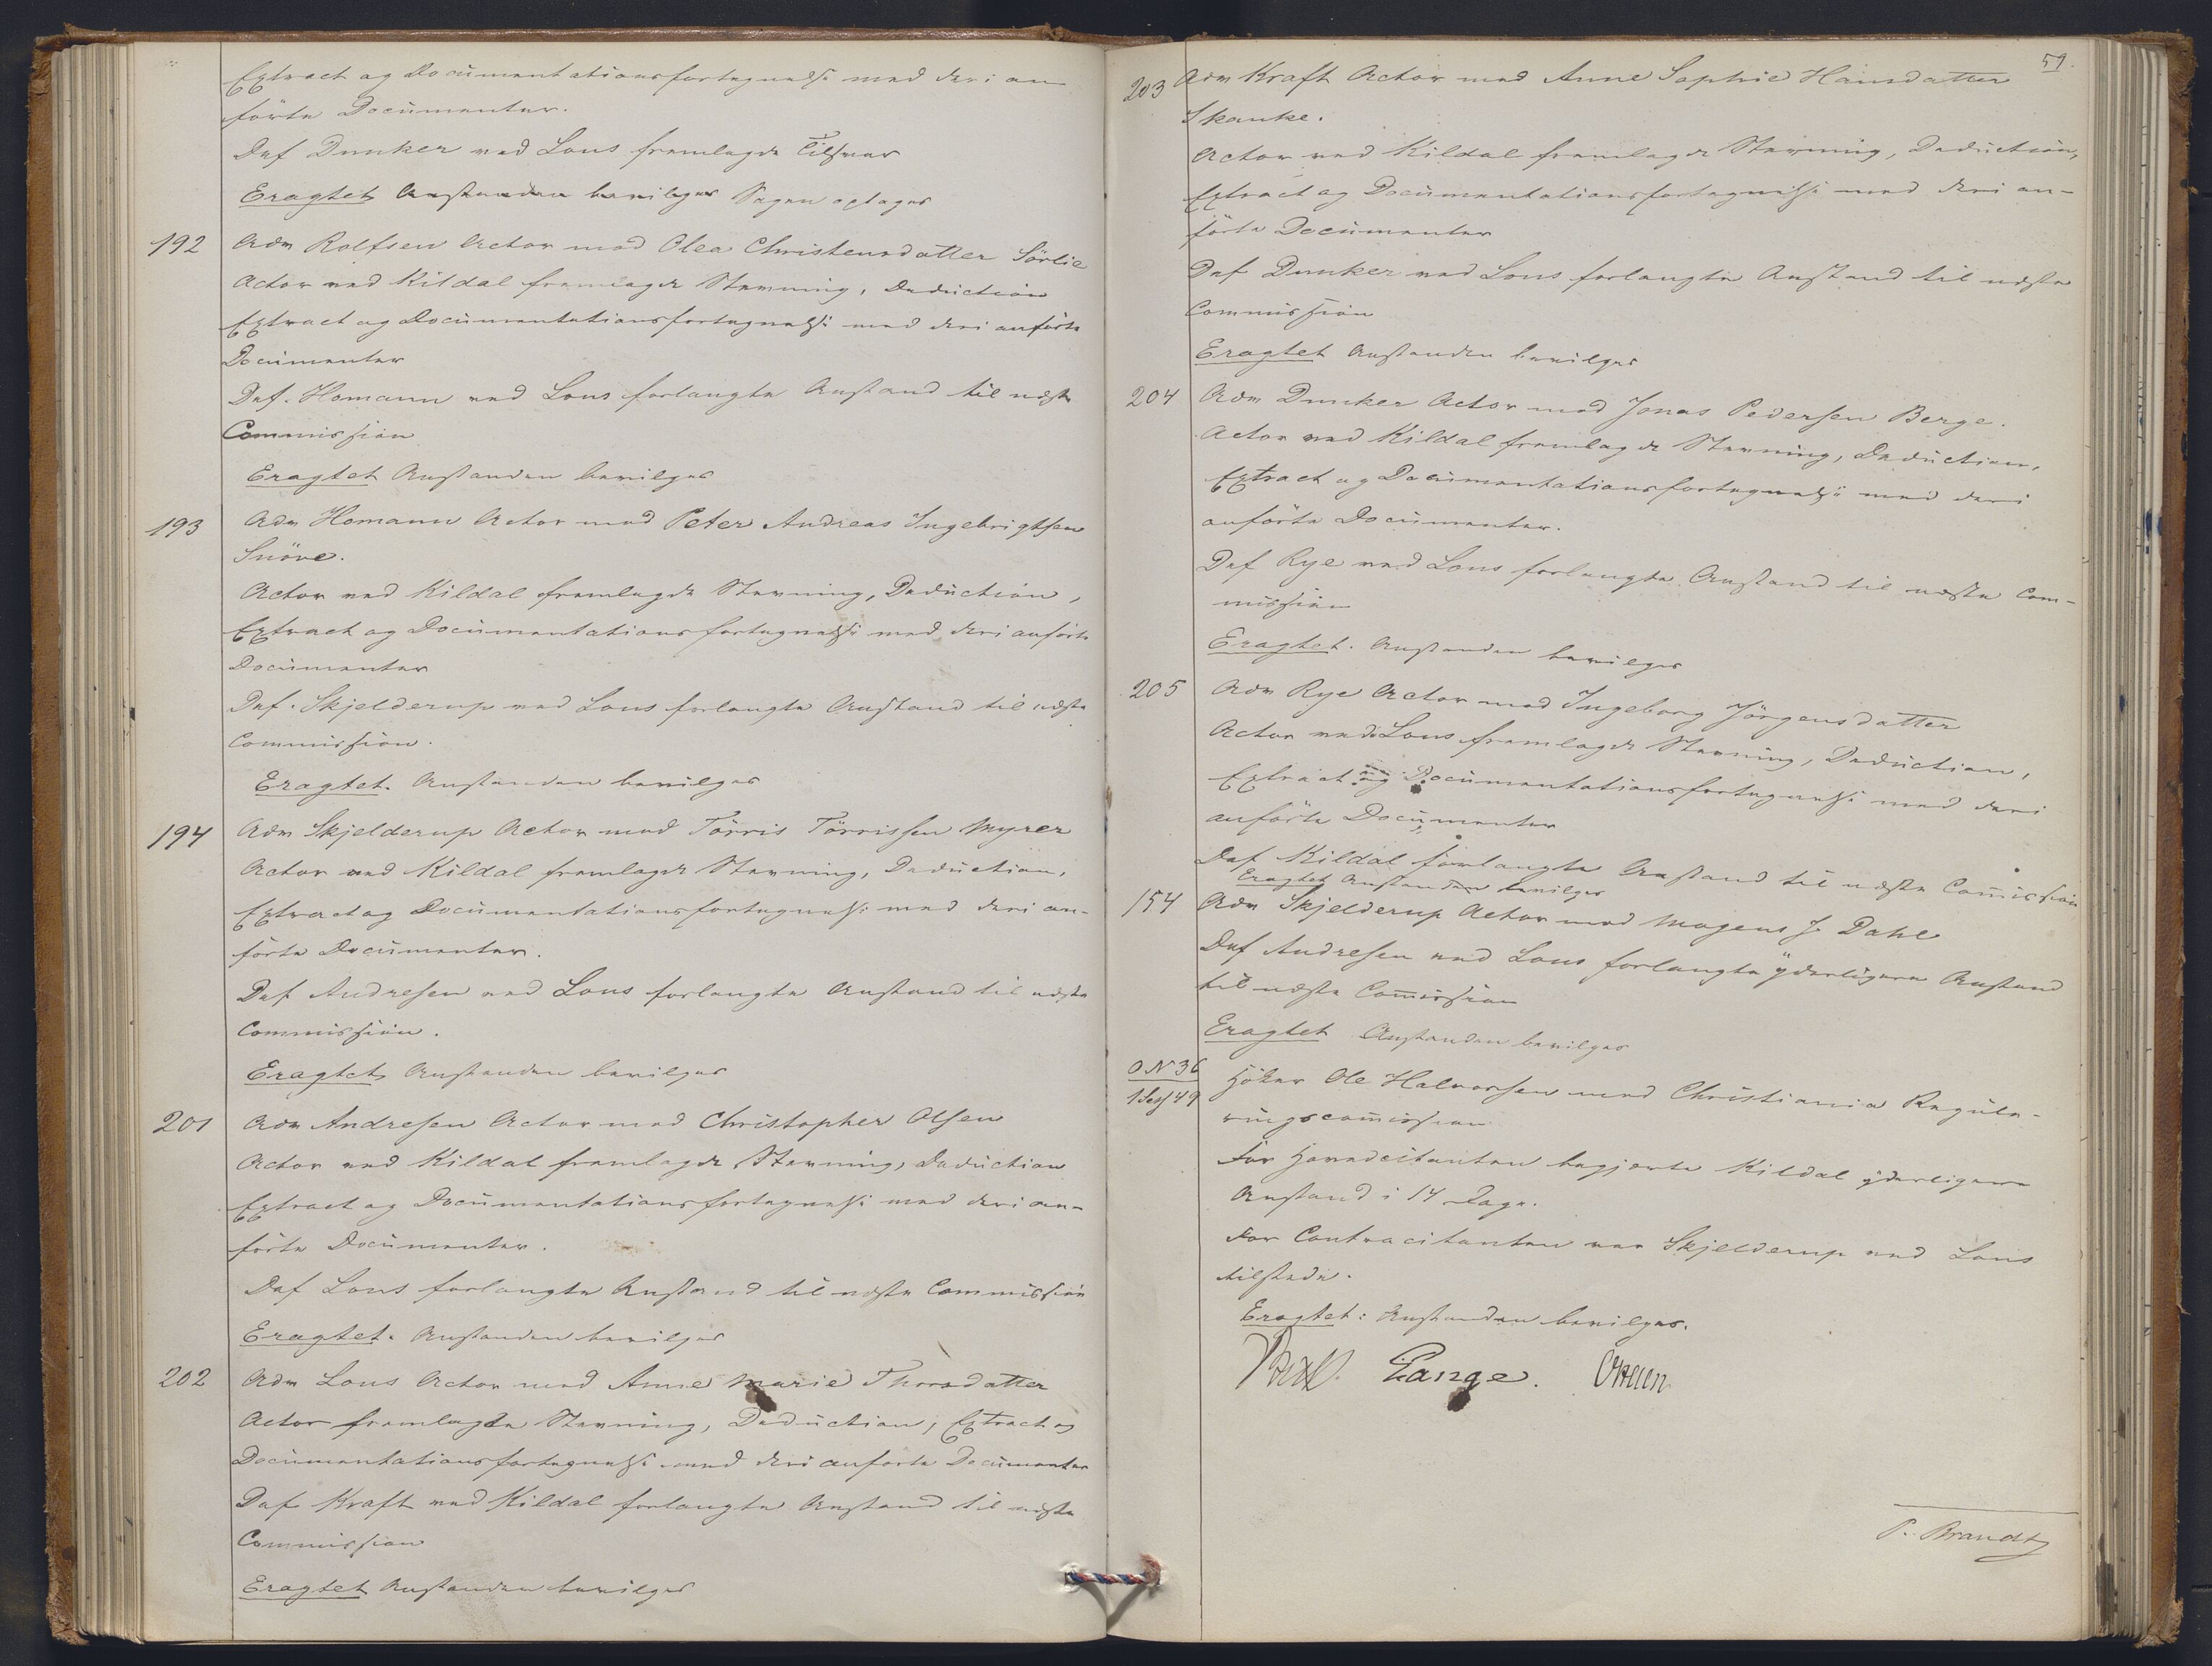 Extract og Documentationsfortegnelse med deri an
førte Documenter.
Def Dunker ved Lous fremlagde Tilsvar
Eragtet Anstanden bevilges Sagen optages
192 Adv Rolfsen Actor mod Olea Christensdatter Sörlie
Actor ved Kildal fremlagde Stevning, Deduction
Extract og Documentationsfortegnelse med deri anførte
Documenter
Def. Homann ved Lous forlangte Anstand til næste
Commission
Eragtet Anstanden bevilges
193 Adv Homann Actor mod Peter Andreas Ingebrigtsen
Snöve.
Actor ved Kildal fremlagde Stevning, Deduction,
Extract og Documentationsfortegnelse med deri anførte
Documenter
Def. Skjelderup ved Lous forlangte Anstand til næste
Commission.
Eragtet. Anstanden bevilges
194 Adv Skjelderup Actor mod Törris Törrissen Myrer
Actor ved Kildal fremlagde Stevning, Deduction,
Extract og Documentationsfortegnelse med deri an-
førte Documenter.
Def Andresen ved Lous forlangte Anstand til næste
Commission.
Eragtet Anstanden bevilges
201 Adv Andresen Actor mod Christopher Olsen
Actor ved Kildal fremlagde Stevning, Deduction
Extract og Documentationsfortegnelse med deri an-
førte Documenter.
Def Lous forlangte Anstand til næste Commission
Eragtet. Anstanden bevilges
202 Adv Lous Actor mod Anne Marie Thorsdatter
Actor fremlagde Stevning, Deduction, Extract og
Documentationsfortegnelse med deri anførte Documenter
Def Kraft ved Kildal forlangte Anstand til næste
Commission
Eragtet Anstanden bevilges
51.
203 Adv Kraft Actor mod Anne Sophie Hansdatter
Skanke.
Actor ved Kildal fremlagde Stevning, Deduction,
Extract og Documentationsfortegnelse med deri an-
førte Documenter
Def Dunker ved Lous forlangte Anstand til næste
Commission
Eragtet Anstanden bevilges
204 Adv Dunker Actor mod Jonas Pedersen Berge.
Actor ved Kildal fremlagde Stevning, Deduction,
Extract og Documentationsfortegnelse med deri
anførte Documenter.
Def Rye ved Lous forlangte Anstand til næste Com-
mission
Eragtet. Anstanden bevilges
205 Adv Rye Actor mod Ingeborg Jörgensdatter
Actor ved Lous fremlagde Stevning, Deduction,
Extract og Documentationsfortegnelse med deri
anførte Documenter
Def Kildal forlangte Anstand til næste Com̄ission
Eragtet Anstanden bevilges
154 Adv Skjelderup Actor mod Mogens J. Dahl
Def Andresen ved Lous forlangte yderligere Anstand
til næste Com̄ission
Eragtet Anstanden bevilges
O N 36
1 Sess 49
Höker Ole Halvorsen mod Christiania Regule-
ringscom̄ission
For Hovedcitanten begjerte Kildal yderligere
Anstand i 14 Dage.
For Contracitanten var Skjelderup ved Lous
tilstede.
Eragtet: Anstanden bevilges.
Lange.
P. Brandt